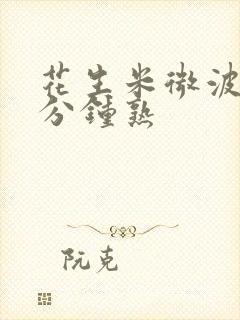 花生米微波
分鍾熟
阮克